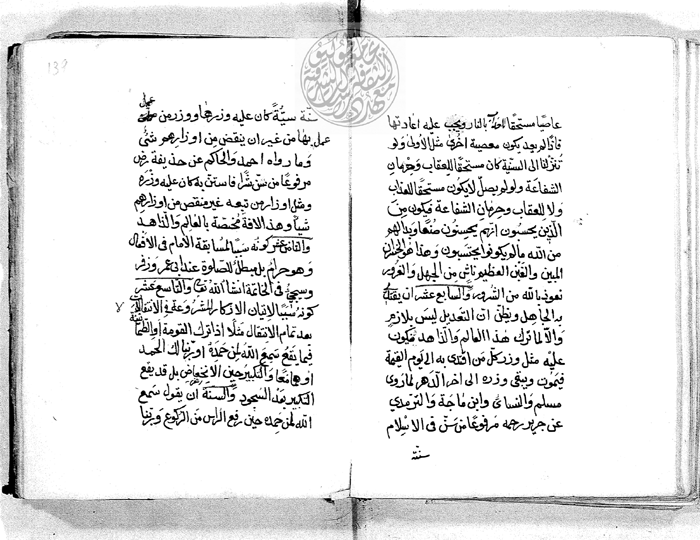 عاصيا مستحقا لاحراقه بالنار ويجب عليه اعادتها
فاذا لم يعد يكون معصية اخرى مثل الاولى ولو
تنزلنا الى السنية كان مستحقا للعقاب وحرمان
الشفاعة ولو لم يصل لا يكون مستحقا للعذاب
ولا للعقاب وحرمان الشفاعة فيكون من
الذين يحسبون انهم يحسنون صنعا وبدا لهم
من الله ما لم يكونوا يحتسبون وهذا هو الخسران
المبين والغبن العظيم ناش من الجهل والغرور
نعوذ بالله من الشرور والسابع عشر ان يقتدى
به الجاهل ويظن ان التعديل ليس بلازم
والا لما ترك هذا العالم والزاهد فيكون
عليه مثل وزر كل من اقتدى به الى يوم القيمة
فيموت ويبقى وزره الى اخر الدهر لما روى
مسلم والنسائى وابن ماجة والترمذي
عن جرير رحمه مرفوعا من سن فى الاسلام
سنة
138
سنة سيئة كان عليه وزرها ووزر من عمل
عمل بها من غير ان ينقص من اوزارهم شئ
وما رواه احمد والحاكم عن حذيفة رض
مرفوعا من سن شرا فاستن به كان عليه وزره
ومثل اوزار من تبعه غير منقص من اوزارهم
شيأ وهذا الافة مختصة بالعالم والزاهد
والثامن عشر كونه سببا لمسابقة الامام فى الافعال
وهو حرام بل مبطل الصلوة عند ابى عمر وزفر
وسيجئ فى الخاتمة انشا الله تعا والتاسع عشر
كونه سببا لاتيان الاذكار المشروعة فى الانتقالات
بعد تمام الانتقال مثلا اذا ترك القومة او الطمأنينة
فيها يقع سمع الله لمن حمده او ربنا لك الحمد
او هما معا والتكبير حين الانخفاض بل قد يقع
التكبير بعد السجود والسنة ان يقول سمع
الله لمن حمده حين رفع الراس من الركوع وربنا